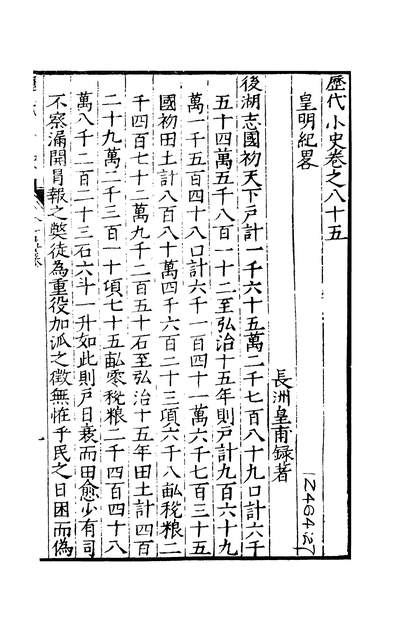 歷代小史卷之八十五
皇明紀畧
長洲皇甫録著
12464:27
後湖志國初天下戸計一千六十五萬二千七百八十九口計六千
五十四萬五千八百一十二至弘治十五年則戸計九百六十九
萬一千五百四十八口計六千一百四十一萬六千七百三十五
國初田土計八百八十萬四千六百二十三項六千八畝稅粮二
千四百七十二萬九千二百五十石至弘治十五年田土計四百
二十九萬二千三百一十項七十五畝零稅粮二千四百四十八
萬八千二百二十三石六斗一升如此則戸日衰而田愈少有司
不察漏開肩報之獘徒為重役加派之徵無恠乎民之日困而偽